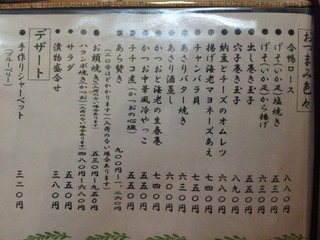 おつまみ色々
合鴨ロース 八八〇円
げそ(いか足)塩焼き 五五〇円
げそ(いか足)から揚げ 六三〇円
出し巻き玉子 五五〇円
穴子巻き玉子 八九〇円
納豆とチーズのオムレツ 七五〇円
揚げ海老マヨネーズあえ 七四〇円
チャンバラ貝
あさりバター焼き 六三〇円
あさり酒蒸し 六〇〇円
かつおと海老の生春巻 七四〇円
かつお中華風冷やっこ 五五〇円
チチコ煮(かつおの心臓) 五五〇円
あら煮き 九〇〇円〜
お頭焼き 五三〇円〜九五〇円
ハランボ焼き(かつお)
サラダ 五五〇円
漬物盛合せ 三八〇円
デザート
手作りシャーベット 三二〇円
(ブルーベリー)